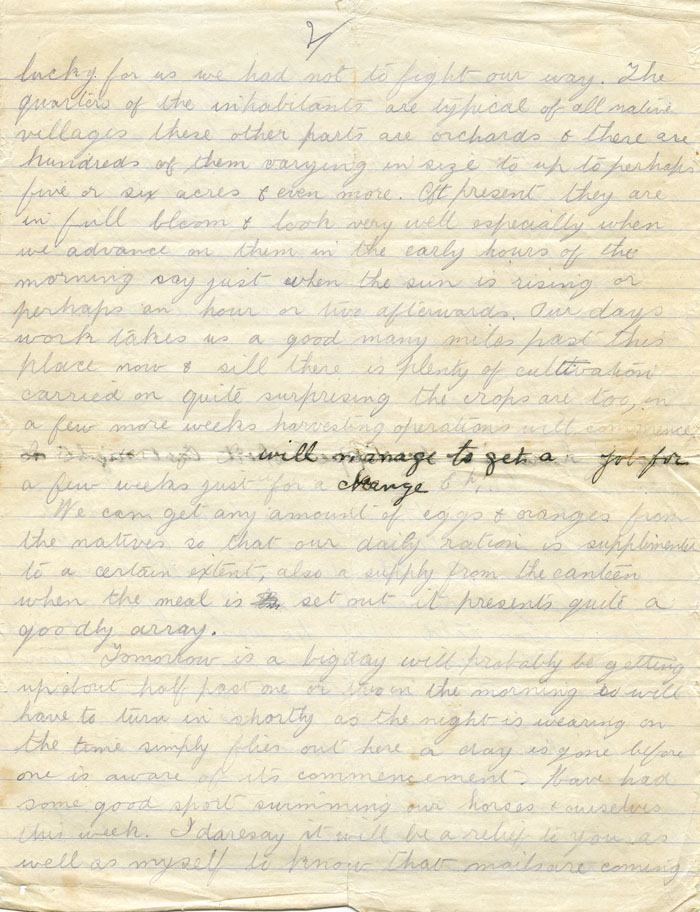 2/
lucky for us we had not to fight our way. The
quarters of the inhabitants are typical of all native
villages these other parts are orchards & there are
hundreds of them varying in size to up to perhaps
five or six acres & even more. At present they are
in full bloom & look very well especially when
we advance on them in the early hours of the
morning say just when the sun is rising or
perhaps an hour or two afterwards. Our days
work takes us a good many miles past this
place now & sill there is plenty of cultivation
carried on quite surprising the crops are too, in
a few more weeks harvesting operations will commence
will manage to get a job for
a few weeks just for a change Eh,
We can get any amount of eggs & oranges from
the natives so that our daily ration is supplimented
to a certain extent, also a supply from the canteen
when the meal is set out it presents quite a
goodly array.
Tomorrow is a big day will probably be getting
up about half past one or two in the morning so will
have to turn in shortly as the night is wearing on
the time simply flies out here a day is gone before
one is aware of its commencement. Have had
some good sport swimming our horses & ourselves
this week. I daresay it will be a relief to you as
well as myself to know that mails are coming